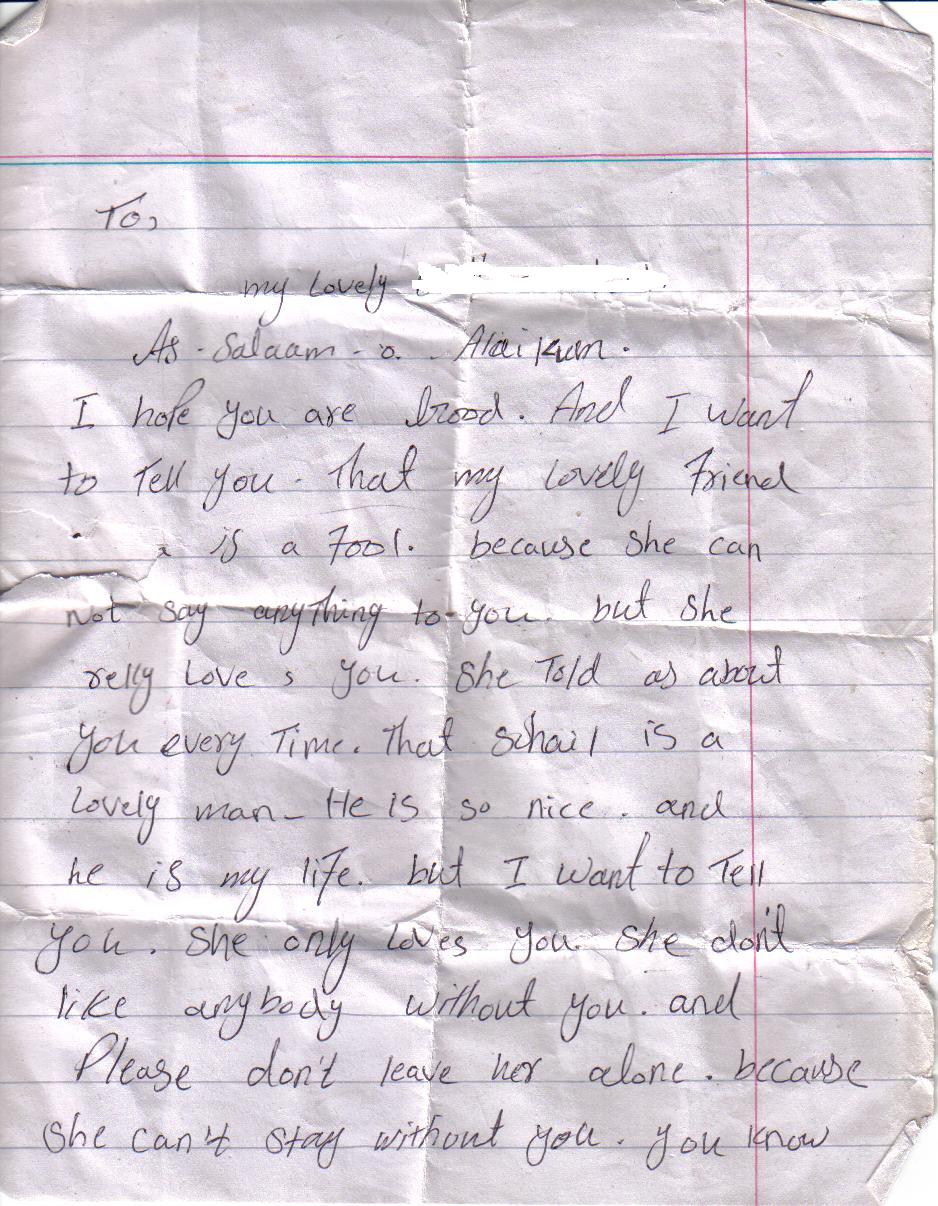 To,
my lovely
As - Salaam - o. Alaikum.
I hope you are good. And I want
to Tell you. That my lovely friend
is a fool. because she can
not say anything to you. but she
relly Love s you. she Told as about
you every Time. That sohail is a
Lovely man - He is so nice. and
he is my life. but I want to Tell
you. she only Loves you. she don't
like anybody without you. and
Please don't leave her alone. because
she can't stay without you. you know